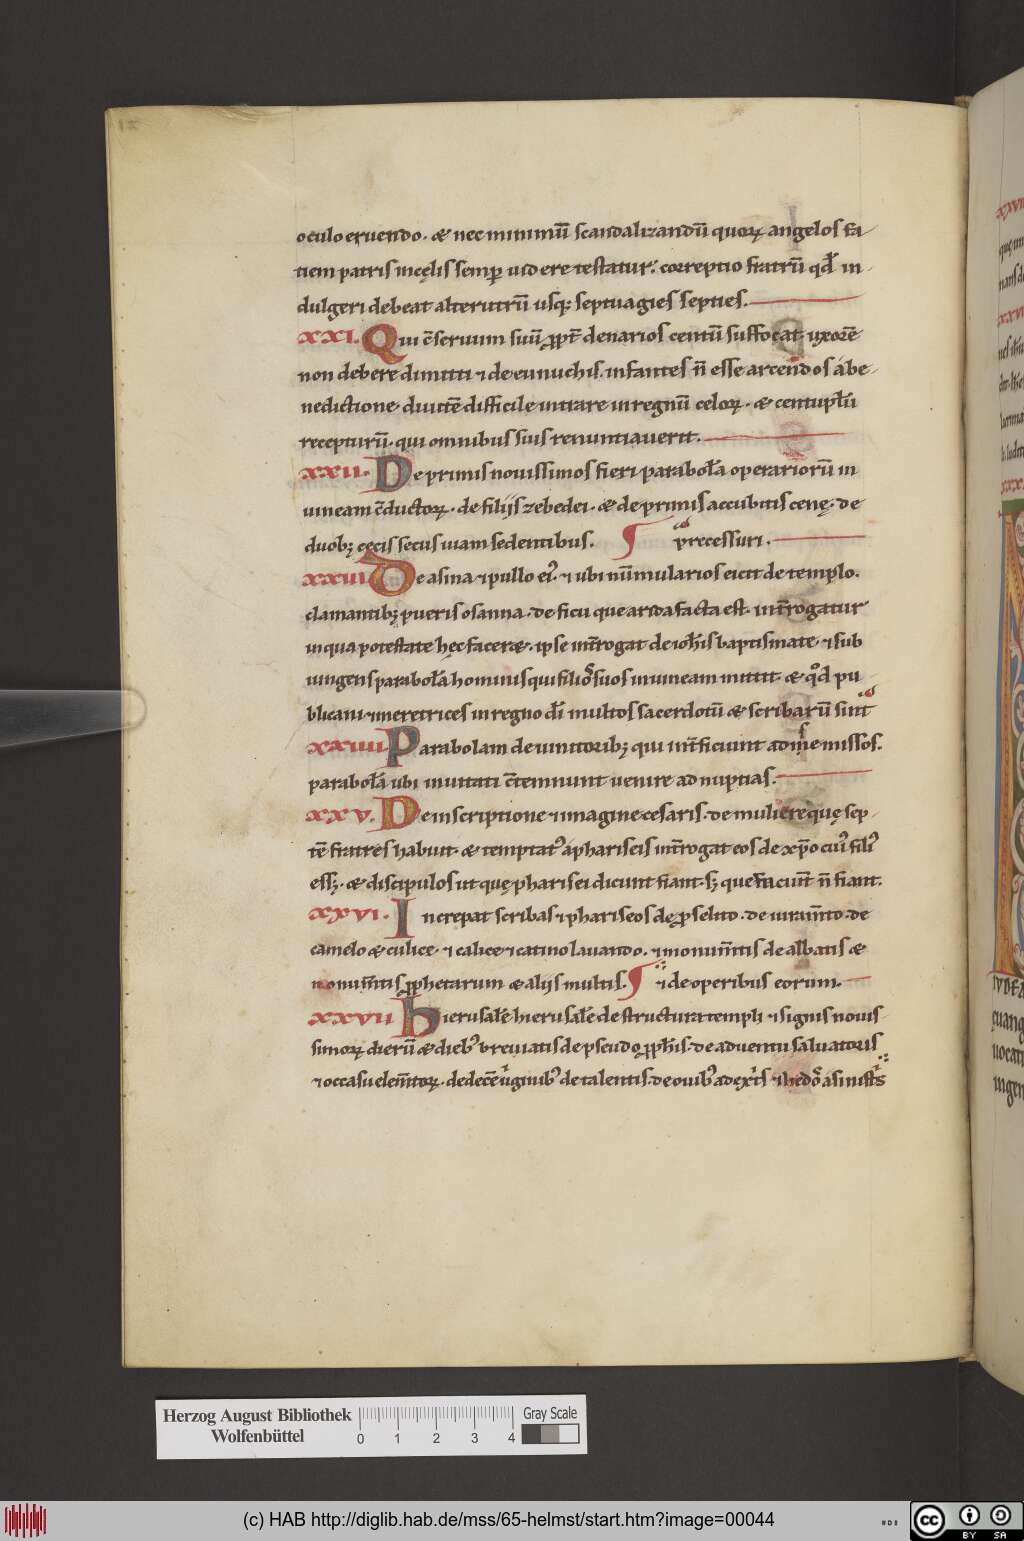 oculo eruendo. & nec minimū scandalizandū quoꝝ angelos fa
tiem patris in cęlis semꝑ uidere testatur. correptio fratrū qđ in
dulgeri debeat alterutrū usq; septuagies septies.
XXI. Qui c̄seruum suū ꝓpt̄ denarios centū suffocat. uxorē
non debere dimitti ⁊ de eunuchis. infantes n̄ esse arcendos a be
nedictione. diuitē difficile intrare in regnū celoꝝ. & centuplū
recepturū. qui omnibus suis renuntiauerit.
XXII. De primis nouissimos fieri parabolā operariorū in
uineam c̄ductoꝝ. de filijs zebedei. & de primis accubitis cenę. de
duobꝫ cęcis secus uiam sedentibus. precessuri.
XXIII De asina ⁊ pullo ei᾽. ⁊ ubi nūmularios eicit de templo.
clamantibꝫ pueris osanna. de ficu que arida facta est. int̄rogatur
in qua potestate hęc facer&. ipse int̄rogat de ioh̄is baptismate. ⁊ sub
iungens parabolā hominis qui filios suos in uineam mittit. & qđ pu
blicani ⁊ meretrices in regno dī multos sacerdotū & scribarū sint
XXIIII Parabolam de uinitoribꝫ qui int̄ficiunt ad me missos.
parabolā ubi inuitati c̄temnunt uenire ad nuptias.
XXV. De inscriptione ⁊ imagine cesaris. de muliere quę sep
tē fratres habuit. & temptat᾽ a phariseis int̄rogat eos de xp̄o cui᾽ fili᾽
ess&. & discipulos ut quę pharisei dicunt fiant. sꝫ que faciunt n̄ fiant.
XXVI. Increpat scribas ⁊ phariseos de ꝓselito. de iuram̄to. de
camelo & culice. ⁊ calice ⁊ catino lauando. ⁊ monum̄tis dealbatis &
monum̄tis ꝓphetarum & alijs multis. ⁊ de operibus eorum.
XXVII Hierusalē hierusalē de structura templi ⁊ signis nouis
simoꝝ dierū & dieb᾽ breuiatis de pseudo ꝓph̄is. de aduentu saluatoris
⁊ occasu elem̄toꝝ. de decē uirginib᾽ de talentis. de ouib᾽ a dext̄s ⁊ hedos a sinist̄s
Herzog August Bibliothek
Wolfenbüttel
0 1 2 3 4
Gray Scale
(c) HAB http://diglib.hab.de/mss/65-helmst/start.htm?image=00044
cc BY SA